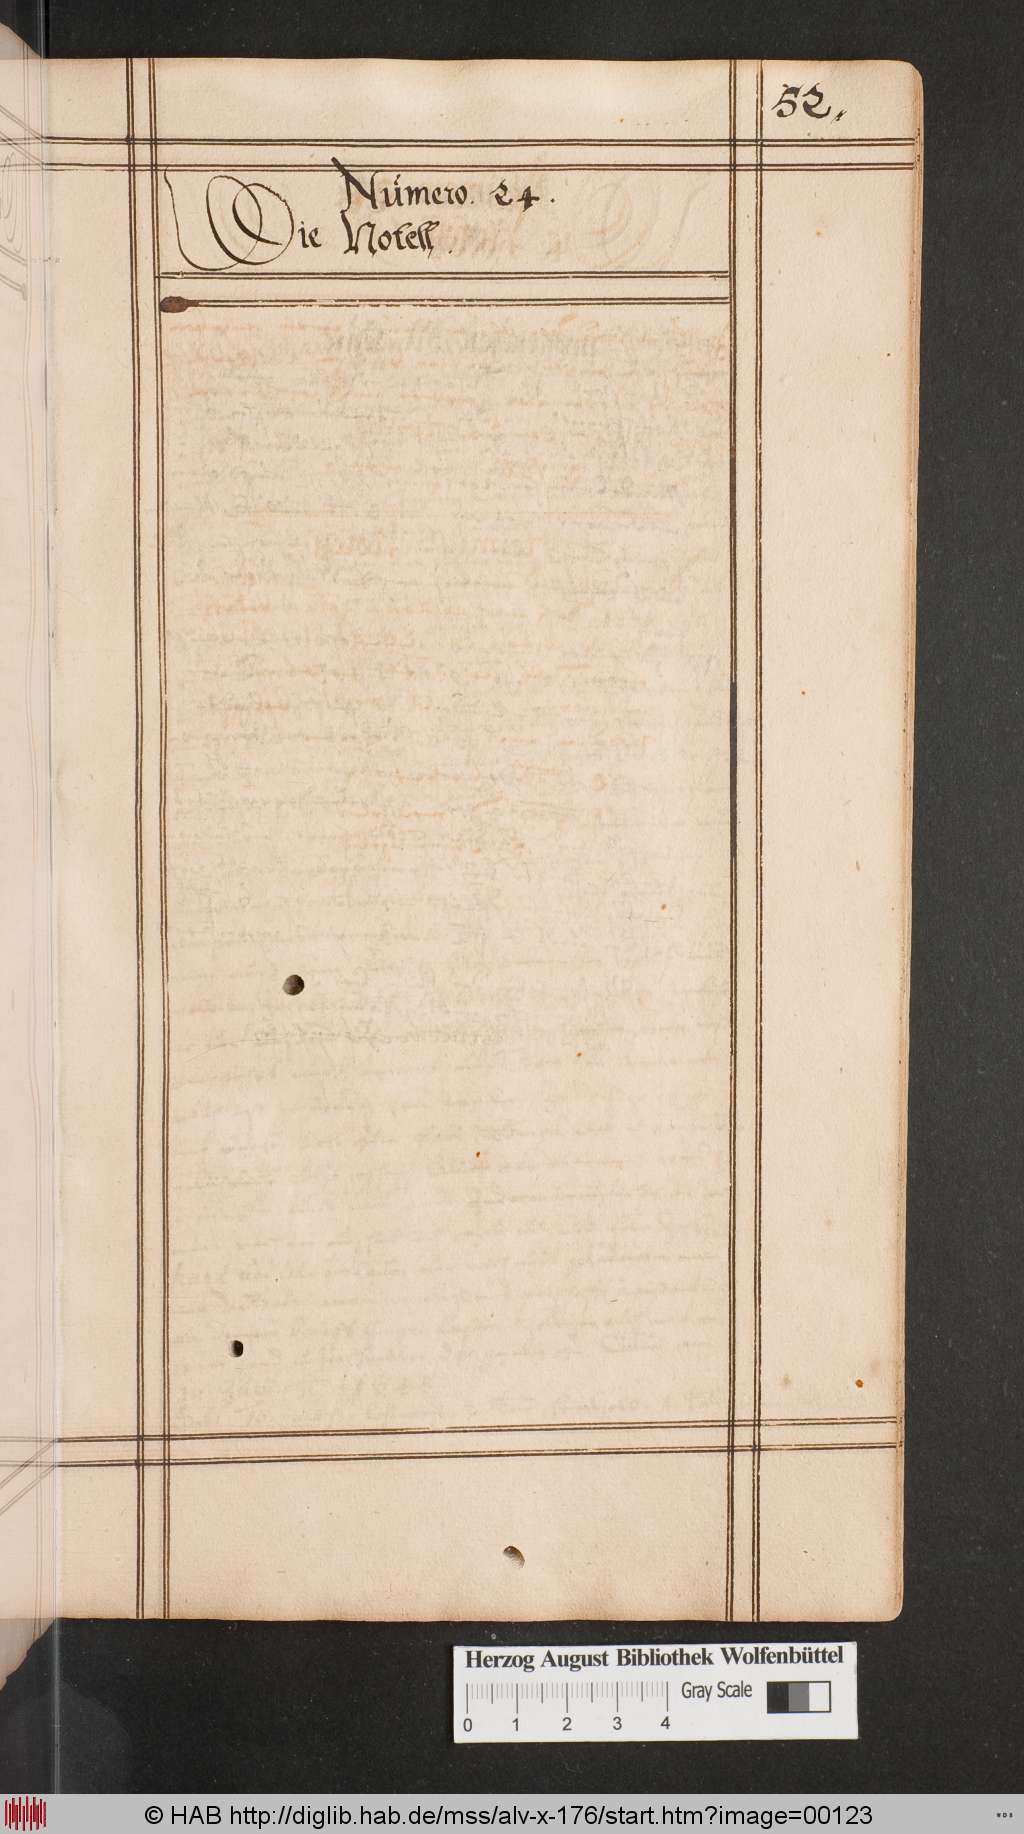 52.
Número. 24.
Die Notell.
Herzog August Bibliothek Wolfenbüttel
Gray Scale
0 1 2 3 4
© HAB http://diglib.hab.de/mss/alv-x-176/start.htm?image=00123
WDB